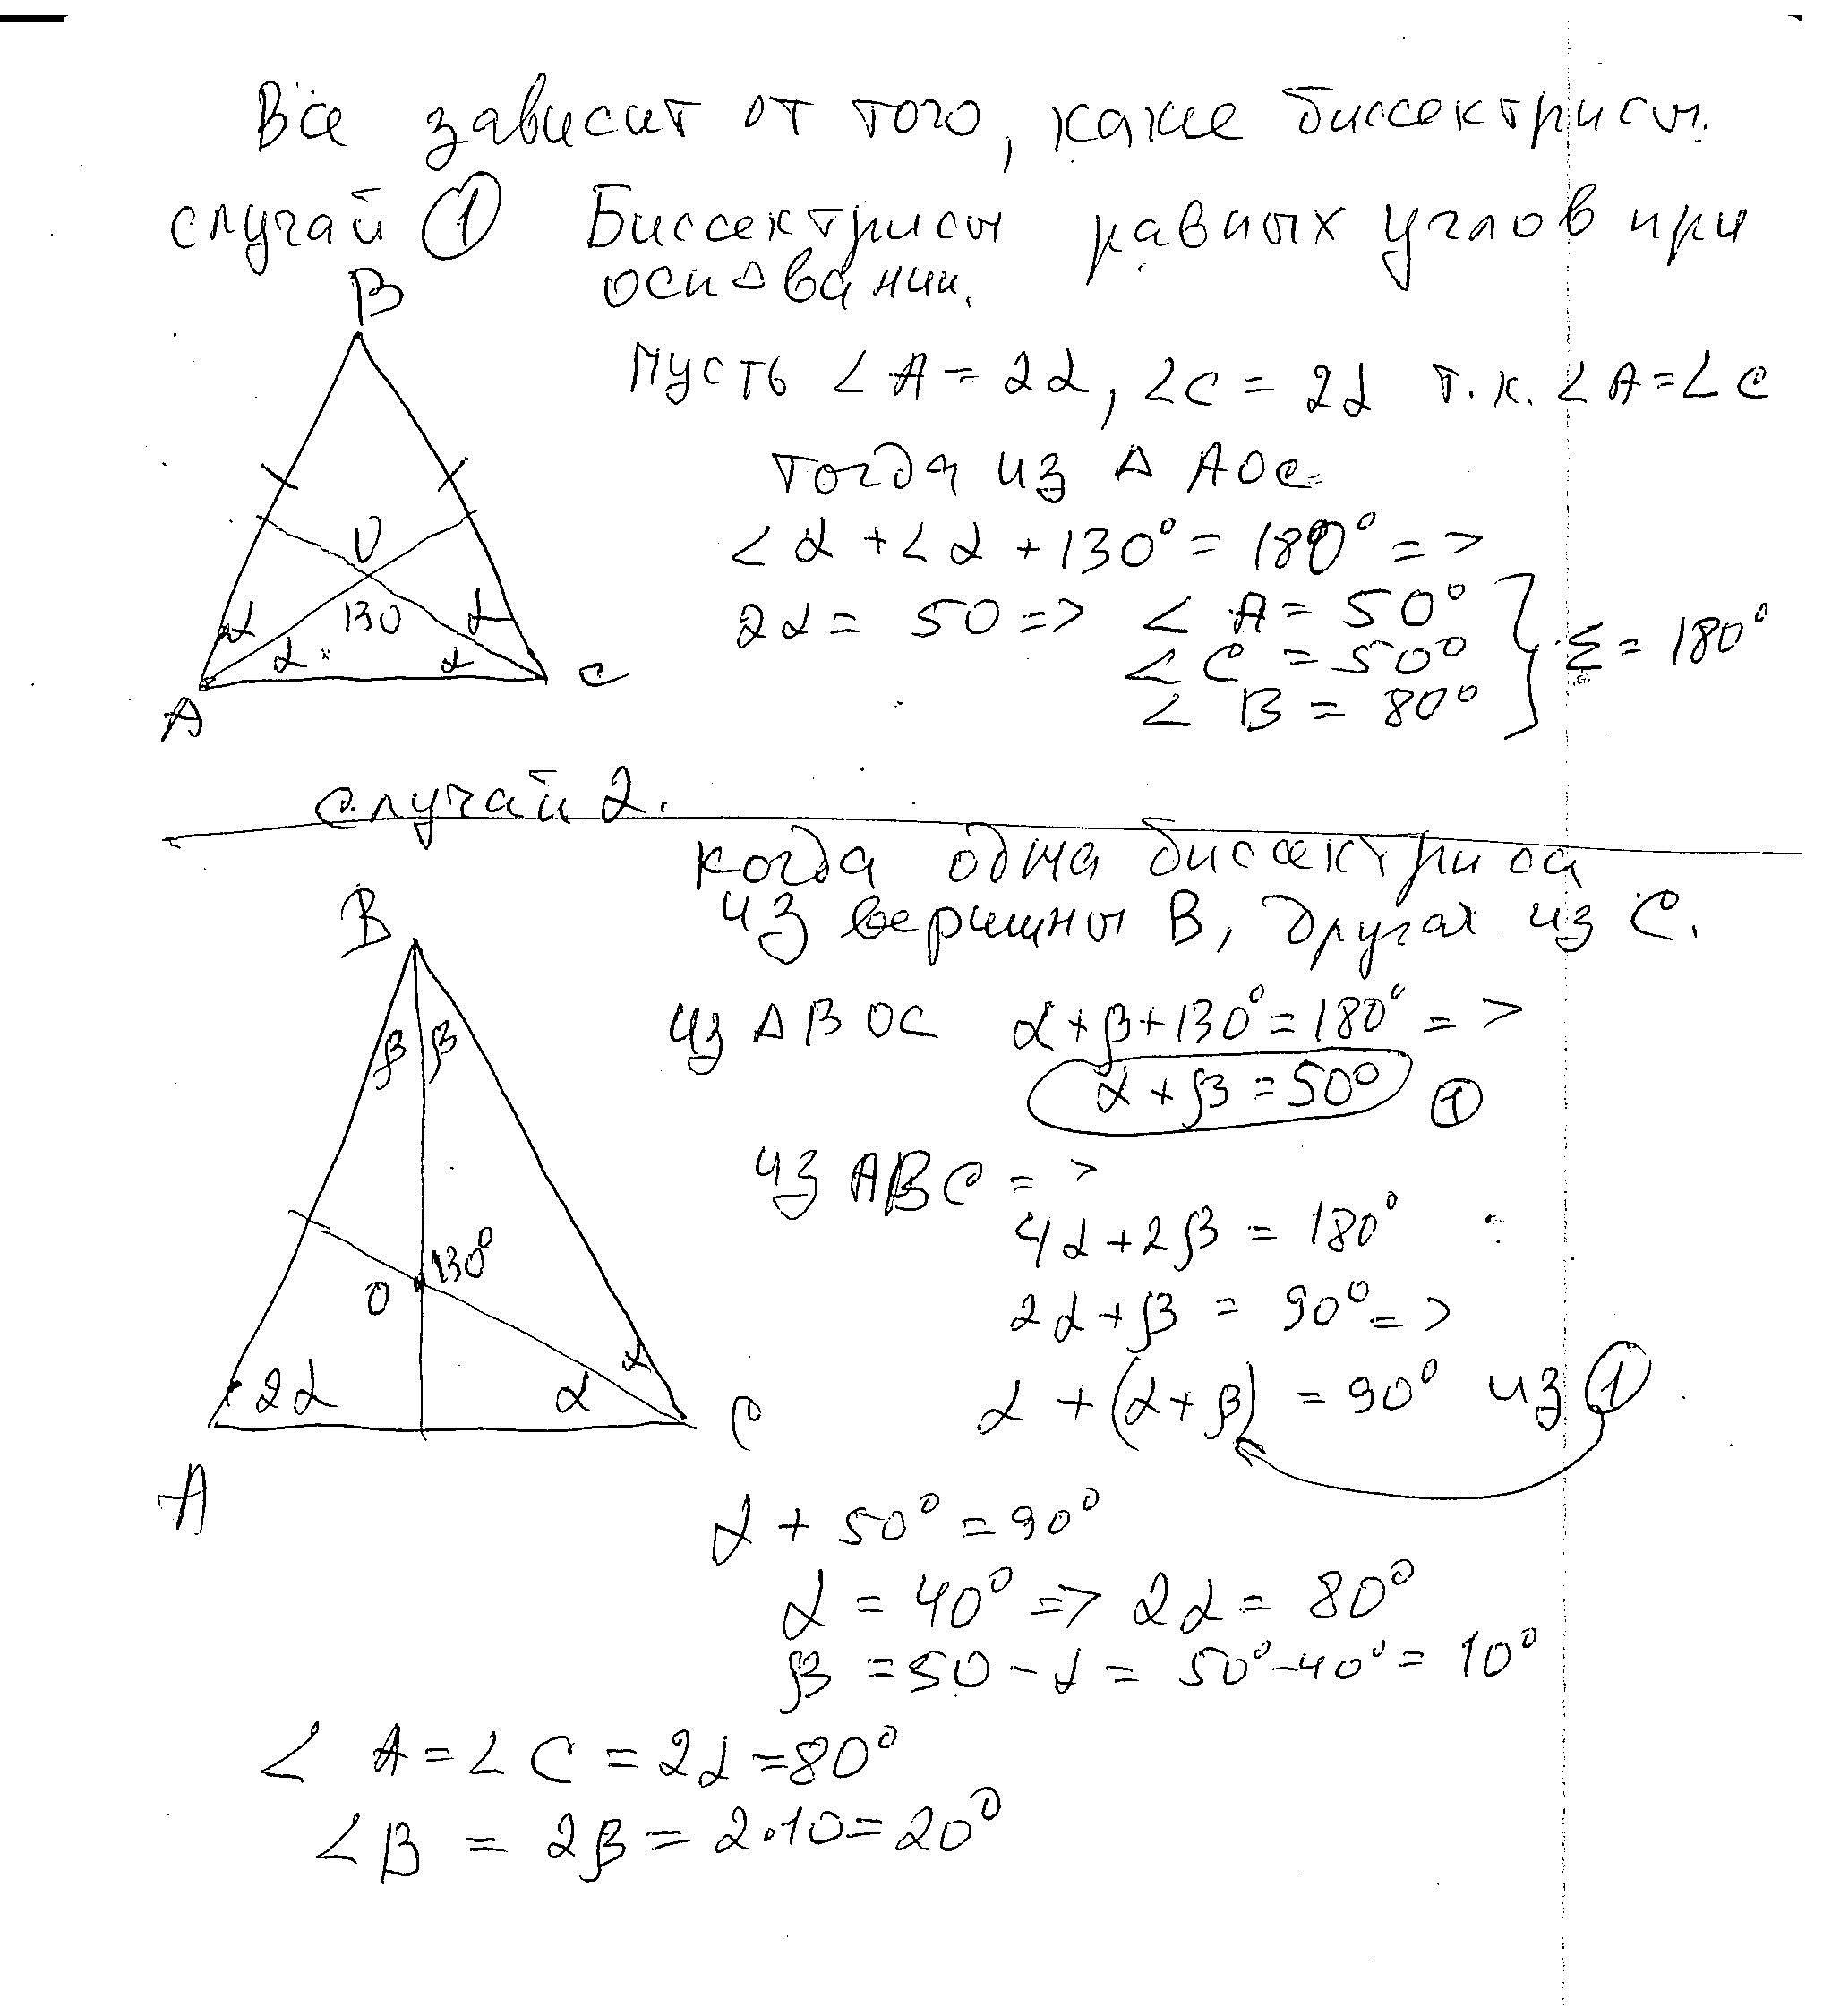 Все зависит от того, какие биссектрисы.
случай ① Биссектрисы равных углов при
основании.
B
пусть ∠A = 2α, ∠C = 2α т.к. ∠A = ∠C
тогда из △ AOC
∠α + ∠α + 130° = 180° =>
O
2α = 50 => ∠A = 50°
∠C = 50°
∠B = 80°
Σ = 180°
α 130 α
α α
A C
случай 2.
когда одна биссектриса
из вершины B, другая из C.
B
из △ BOC α + β + 130° = 180° =>
β β
α + β = 50° ①
из ABC =>
4α + 2β = 180°
130°
O
2α + β = 90° =>
α
2α α
C
α + (α + β) = 90° из ①
A
α + 50° = 90°
α = 40° => 2α = 80°
β = 50 - α = 50° - 40° = 10°
∠ A = ∠ C = 2α = 80°
∠B = 2β = 2·10 = 20°